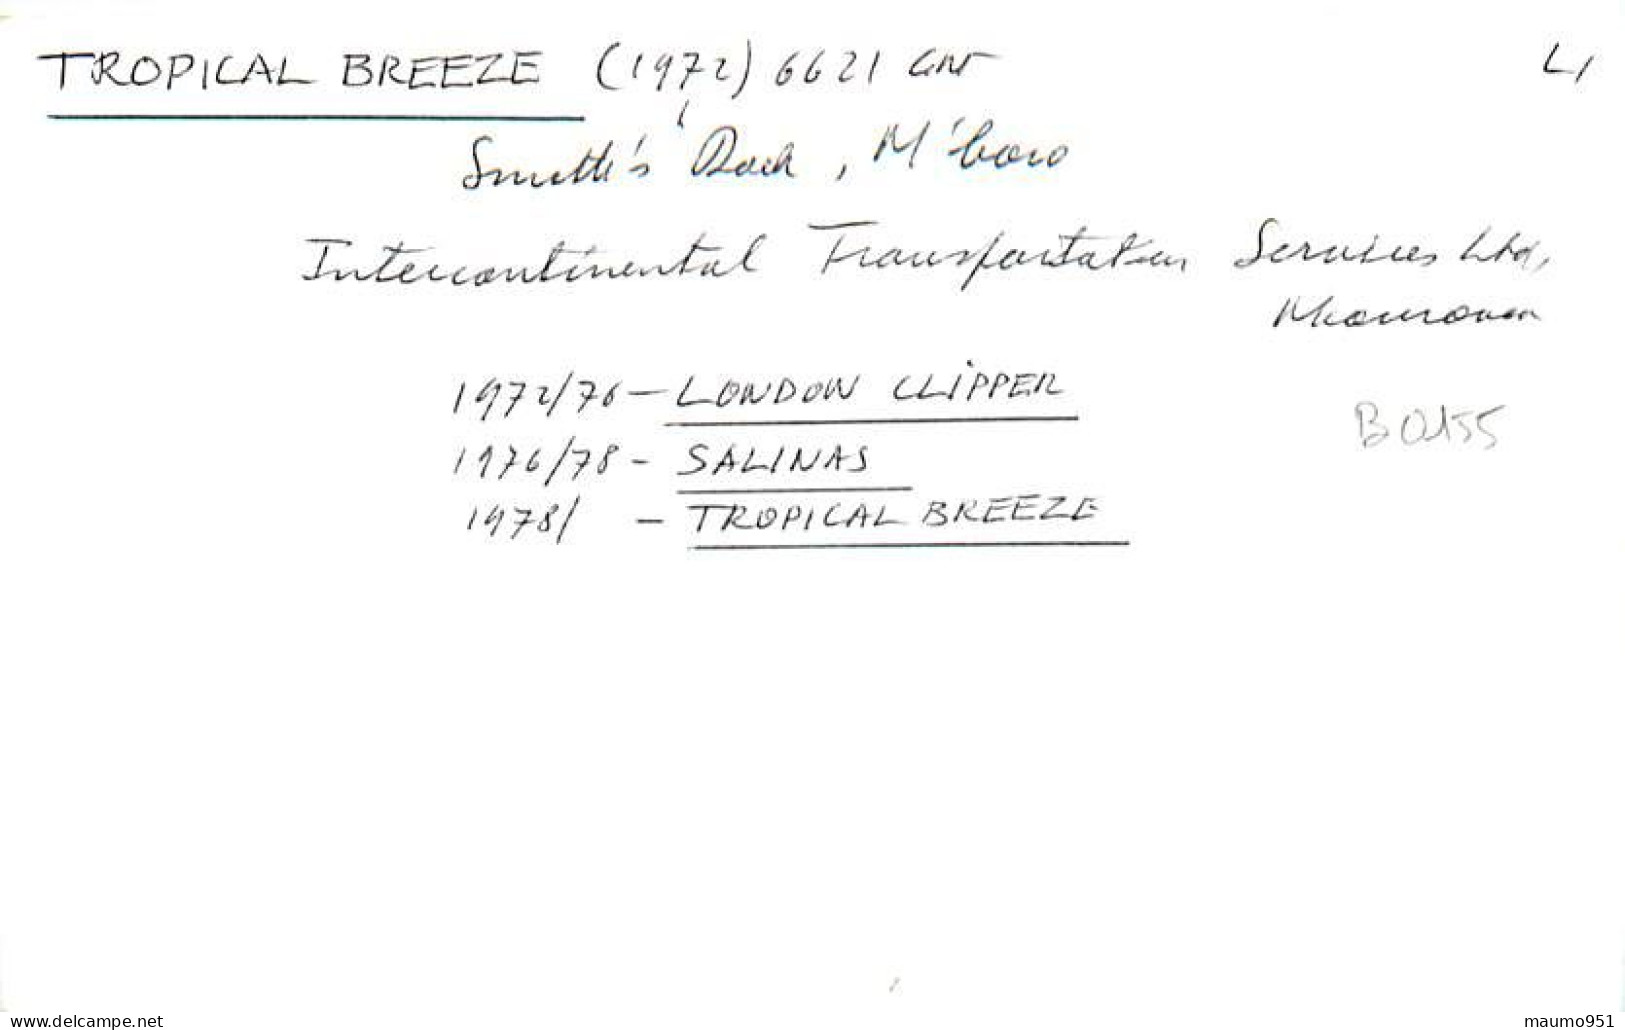 TROPICAL BREEZE (1972) 6621 GRT L/
Smith's Dock, M'boro
Intercontinental Transportation Services Ltd,
1972/76 - LONDON CLIPPER
B0155
1976/78 - SALINAS
1978/ - TROPICAL BREEZE
delcampe.net
maumo951